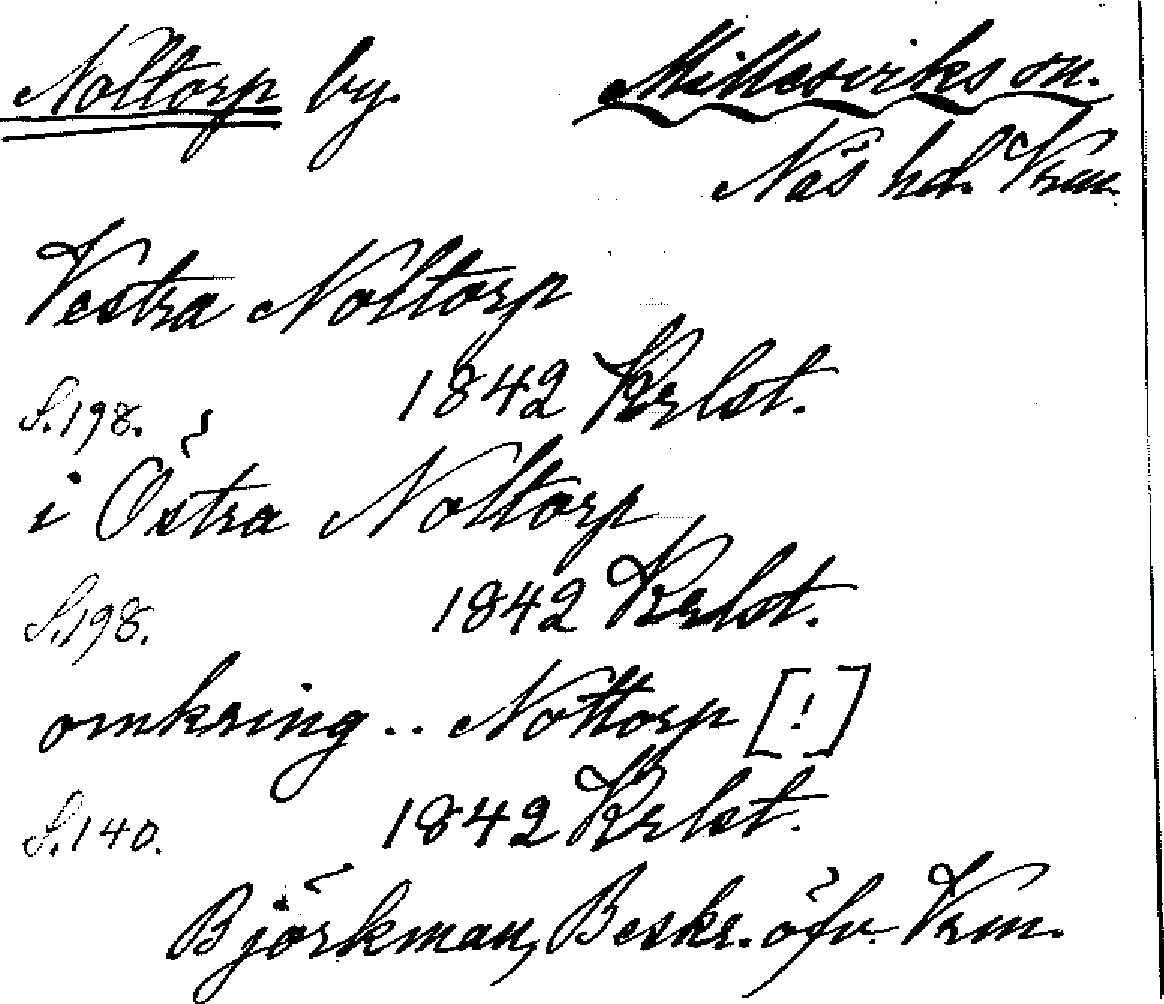 Noltorp by. Millesviks sn.
Näs hd. Vrm.
Vestra Noltorp
S. 198. 1842 Krlst.
i Östra Noltorp
S. 198. 1842 Krlst.
omkring .. Nottorp [!]
S. 140. 1842 Krlst.
Björkman, Beskr. öfv. Vrm.